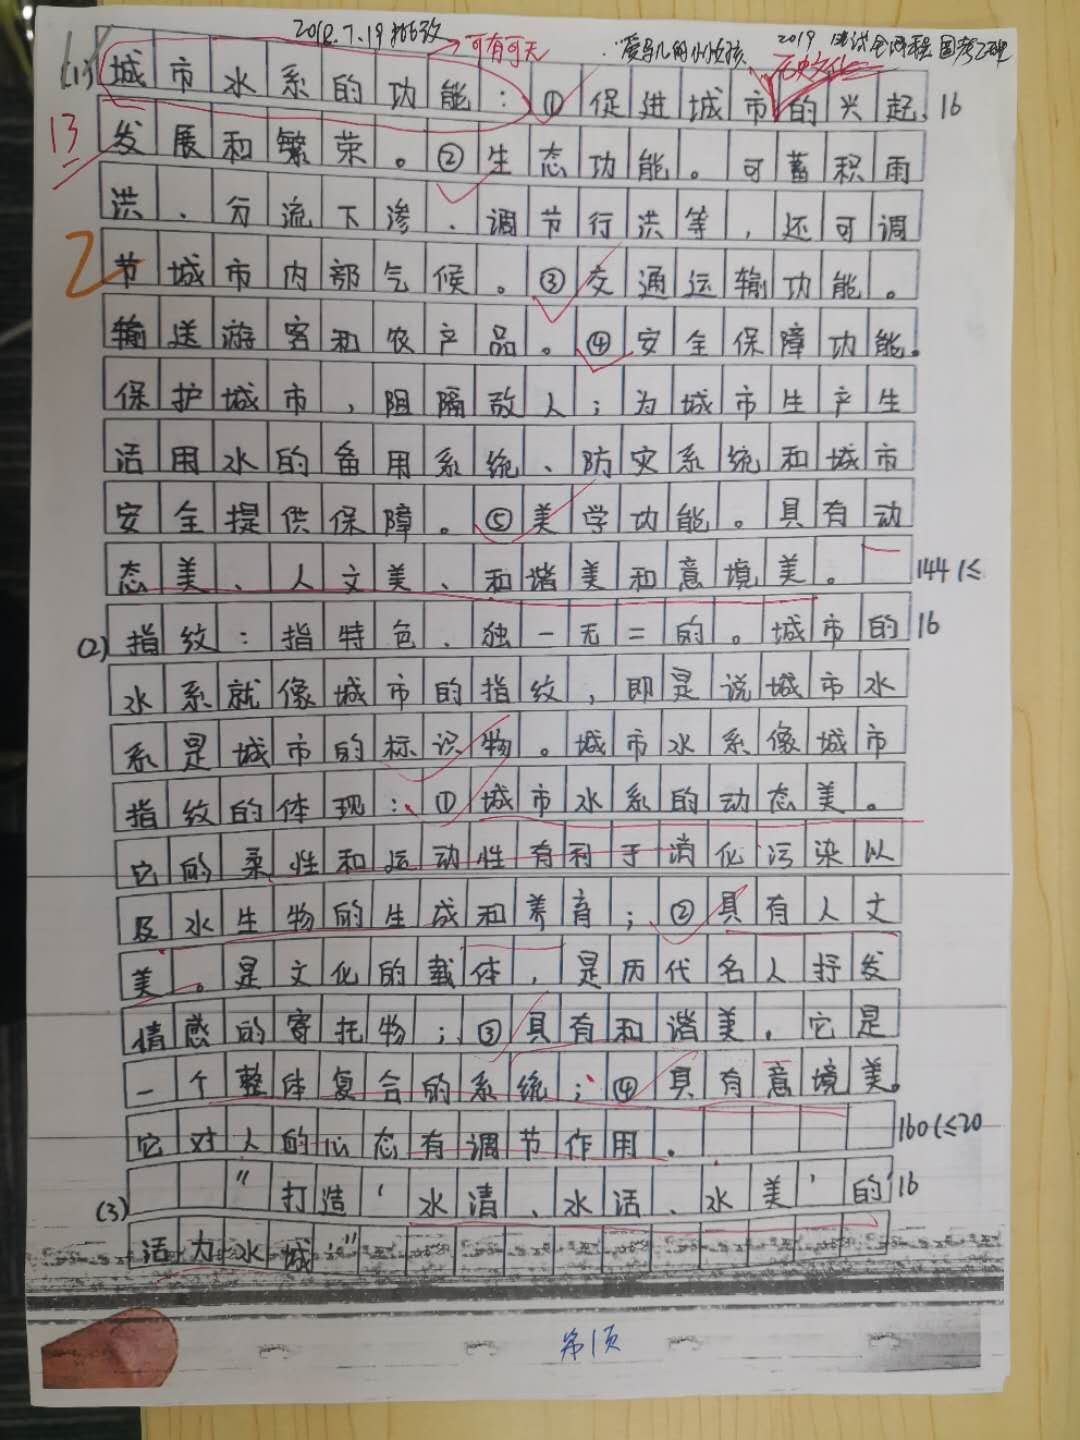 2018.7.19批改
可有可无
爱马儿的小女孩
2019
历史文化
(1)城市水系的功能:①促进城市的兴起、16
13
发展和繁荣。②生态功能。可蓄积雨
洪、分流下渗、调节行洪等,还可调
2
节城市内部气候。③交通运输功能。
输送游客和农产品。④安全保障功能。
保护城市,阻隔敌人;为城市生产生
活用水的备用系统、防灾系统和城市
安全提供保障。⑤美学功能。具有动
态美、人文美、和谐美和意境美。 144
(2)指纹:指特色、独一无二的。城市的16
水系就像城市的指纹,即是说城市水
系是城市的标识物。城市水系像城市
指纹的体现:①城市水系的动态美。
它的柔性和运动性有利于消化污染以
及水生物的生成和养育;②具有人文
美。是文化的载体,是历代名人抒发
情感的寄托物;③具有和谐美,它是
一个整体复合的系统;④具有意境美。
它对人的心态有调节作用。 160(≤20
(3)“打造‘水清、水活、水美’的16
活力水城”
第1页